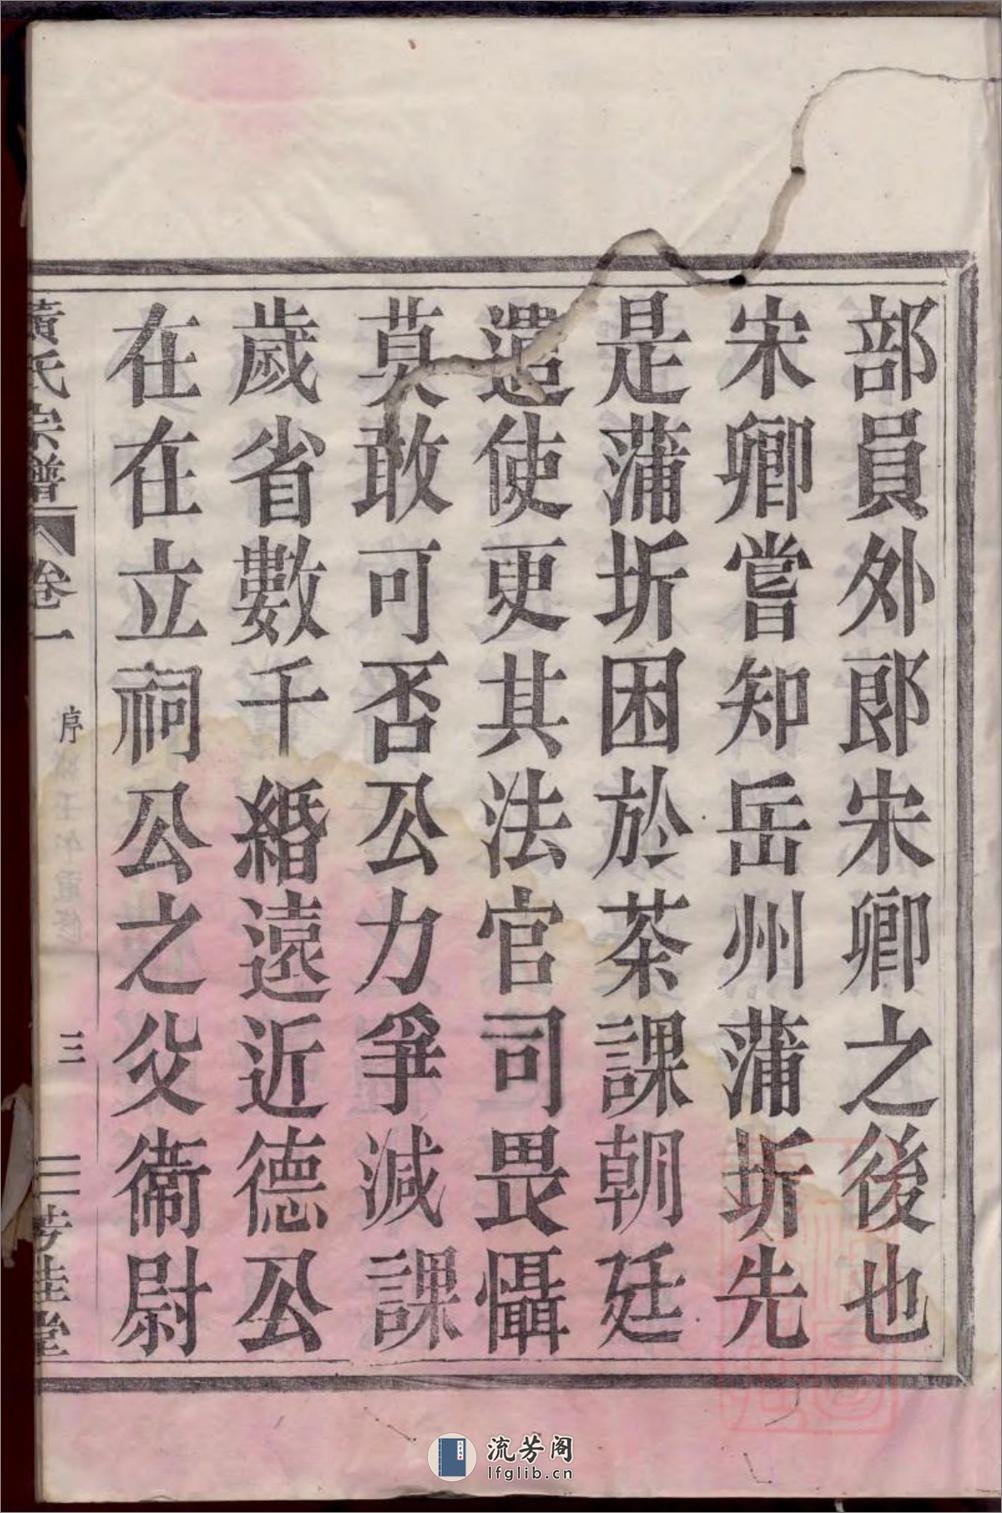 部員外郎宋卿之後也
宋卿嘗知岳州蒲圻先
是蒲圻困於茶課朝廷
遣使更其法官司畏懾
莫敢可否公力爭減課
歲省數千緡遠近德公
在在立祠公之父衞尉
黃氏宗譜
卷一
序
三
芳桂堂
流芳阁
lfglib.cn